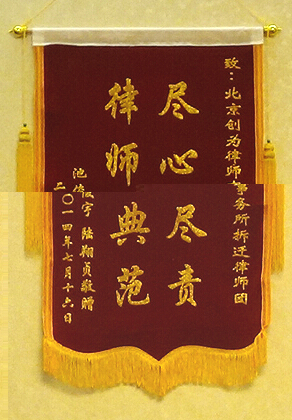 致：北京创为律师事务所拆迁律师团
尽心尽责
律师典范
池 宇 陆翔贞敬赠
二〇一四年七月十六日